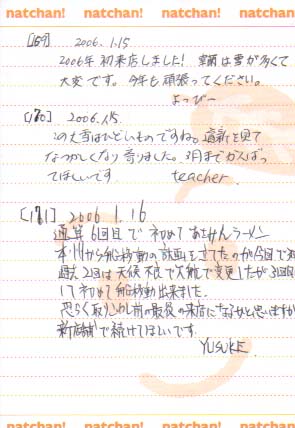 natchan! natchan! natchan! natchan!
[169] 2006.1.15
2006年 初来店しました! 室蘭は雪が多くて
大変です。今年も頑張ってください。
よっぴー
[170] 2006.1.15
この大雪はひどいものですね。道新を見て
なつかしくなり寄りました。3月までがんばっ
てほしいです teacher.
[171] 2006 1.16
通算6回目で初めて
から 移動の計画を立てたのが今回で3
過去2回は天候不良で 変更したが3回目に
して初めて 移動出来ました。
恐らく取り 前の最後の来店になるかと思いますが
新店舗で続けてほしいです。
YUSUKE
natchan! natchan! natchan! natchan!